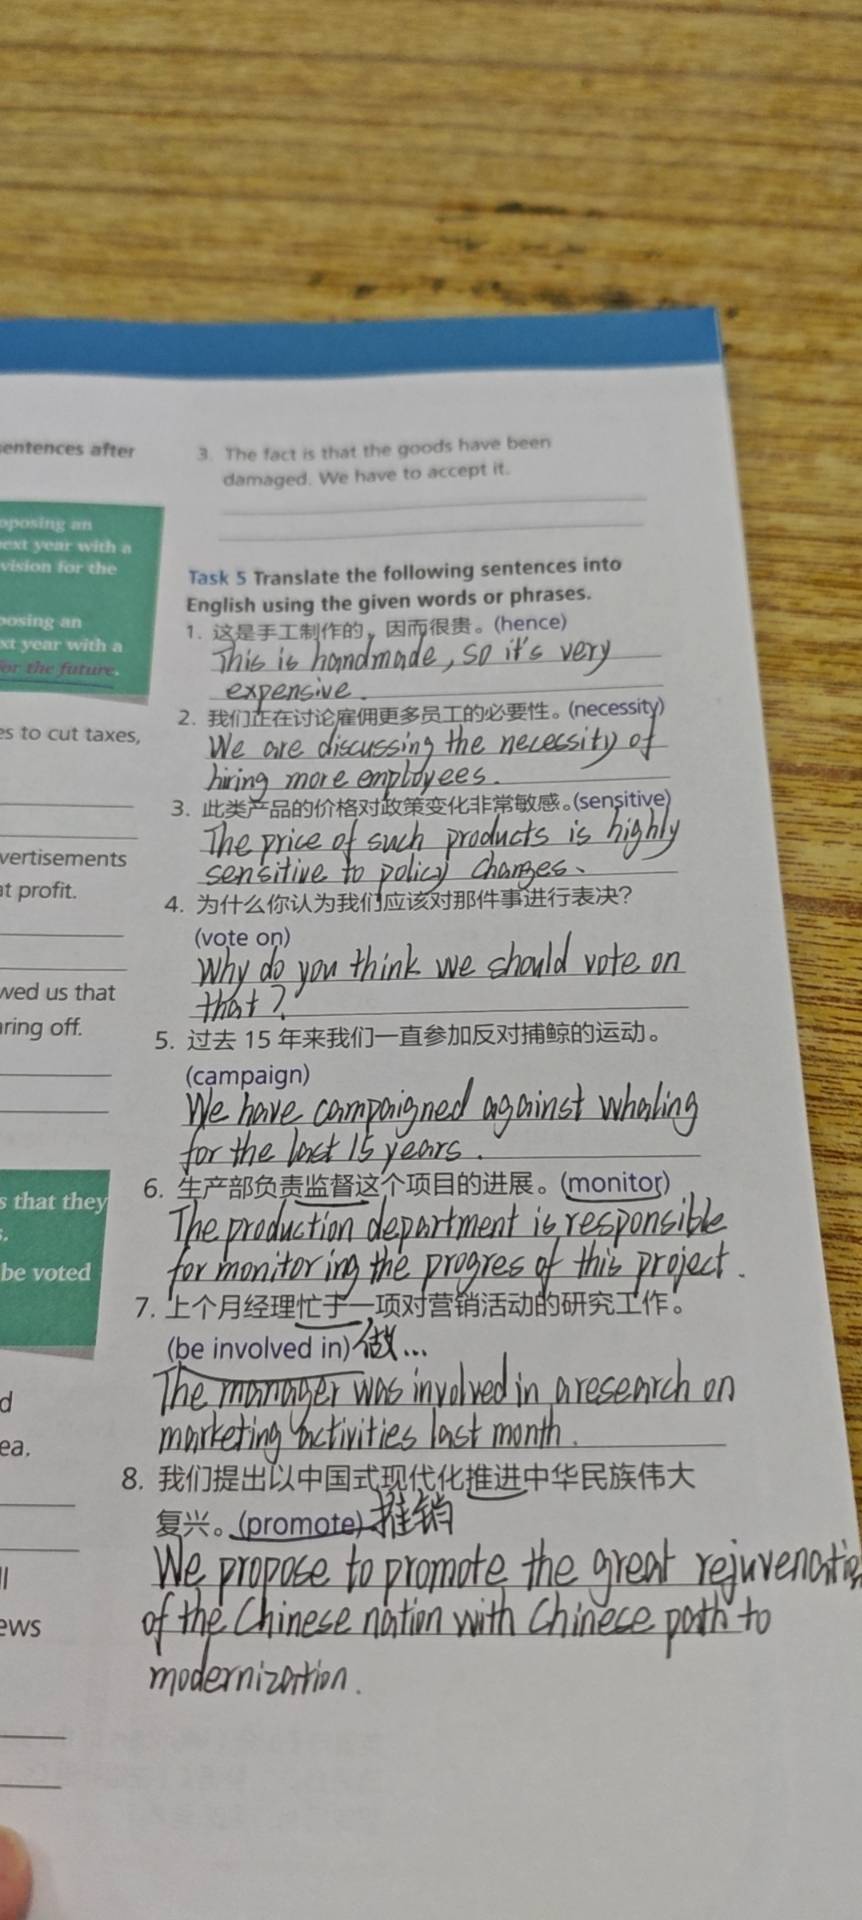 entences after
posing an
ext year with a
vision for the
posing an
xt year with a
or the future.
es to cut taxes,
vertisements
at profit.
wed us that
aring off.
s that they
s.
be voted
d
ea.
ll
ews
3. The fact is that the goods have been
damaged. We have to accept it.
Task 5 Translate the following sentences into
English using the given words or phrases.
1. 这是手工制作的，因而很贵。(hence)
This is handmade, so it's very
expensive.
2. 我们正在讨论雇佣更多员工的必要性。(necessity)
We are discussing the necessity of
hiring more employees.
3. 此类产品的价格对政策变化非常敏感。(sensitive)
The price of such products is highly
sensitive to policy changes.
4. 为什么你认为我们应该对那件事进行表决？
(vote on)
Why do you think we should vote on
that?
5. 过去 15 年来我们一直参加反对捕鲸的运动。
(campaign)
We have campaigned against whaling
for the last 15 years.
6. 生产部负责监督这个项目的进展。(monitor)
The production department is responsible
for monitoring the progres of this project.
7. 上个月经理忙于一项对营销活动的研究工作。
(be involved in) 做...
The manager was involved in a research on
marketing activities last month.
8. 我们提出以中国式现代化推进中华民族伟大
复兴。(promote) 推销
We propose to promote the great rejuvenatio
of the Chinese nation with Chinese path to
modernization.